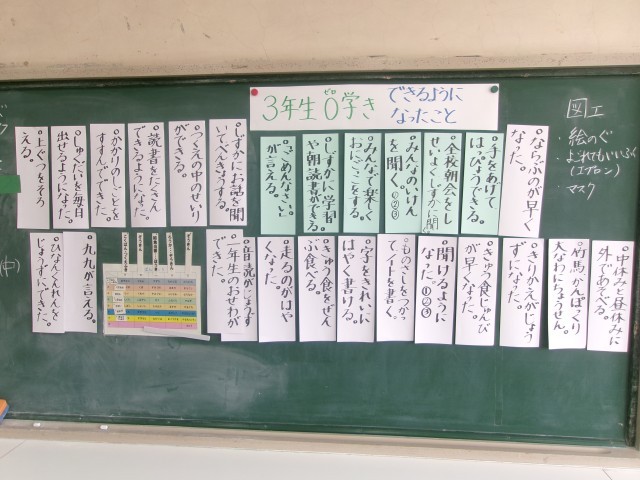 3年生 0学き できるように
なったこと
ゼロ
図工
・絵のぐ
・よごれてもいいふく
(エプロン)
・マスク
。ならぶのが早く
なった。
。手をあげて
はっぴょうできる。
。全校朝会をとし
せいよくしずかに聞く
。みんなのいけん
を聞く。①②③
。みんなで楽しく
おにごこをする。
。しずかに学習
や朝読書ができる
。ごめんなさいと
が言える。
。しずかにお話を聞
いてべんきょうする。
。つくえの中のせいり
ができる。
。読書をたくさん
できるようになった。
。かかりのしごとを
すすんでできた。
。しゅくだいを毎日
出せるようになった。
。上ぐつをそろ
える。
。中休みと昼休みに
外であそべる。
。竹馬かんぽっくり
大なわにちょうせん。
。きりかえがじょう
ずになった。
。きゅう食じゅんび
が早くなった。
。聞けるように
なった①②③
。ものさしをつかっ
てノートを書く。
。字をきれいに
はやく書ける。
。きゅう食をぜん
ぶ食べる。
。走るのがはや
くなった。
。音読がじょうず
。一年生のおせわが
できた。
。九九が言える。
。ひなんくんれんを
じょうずにできた。